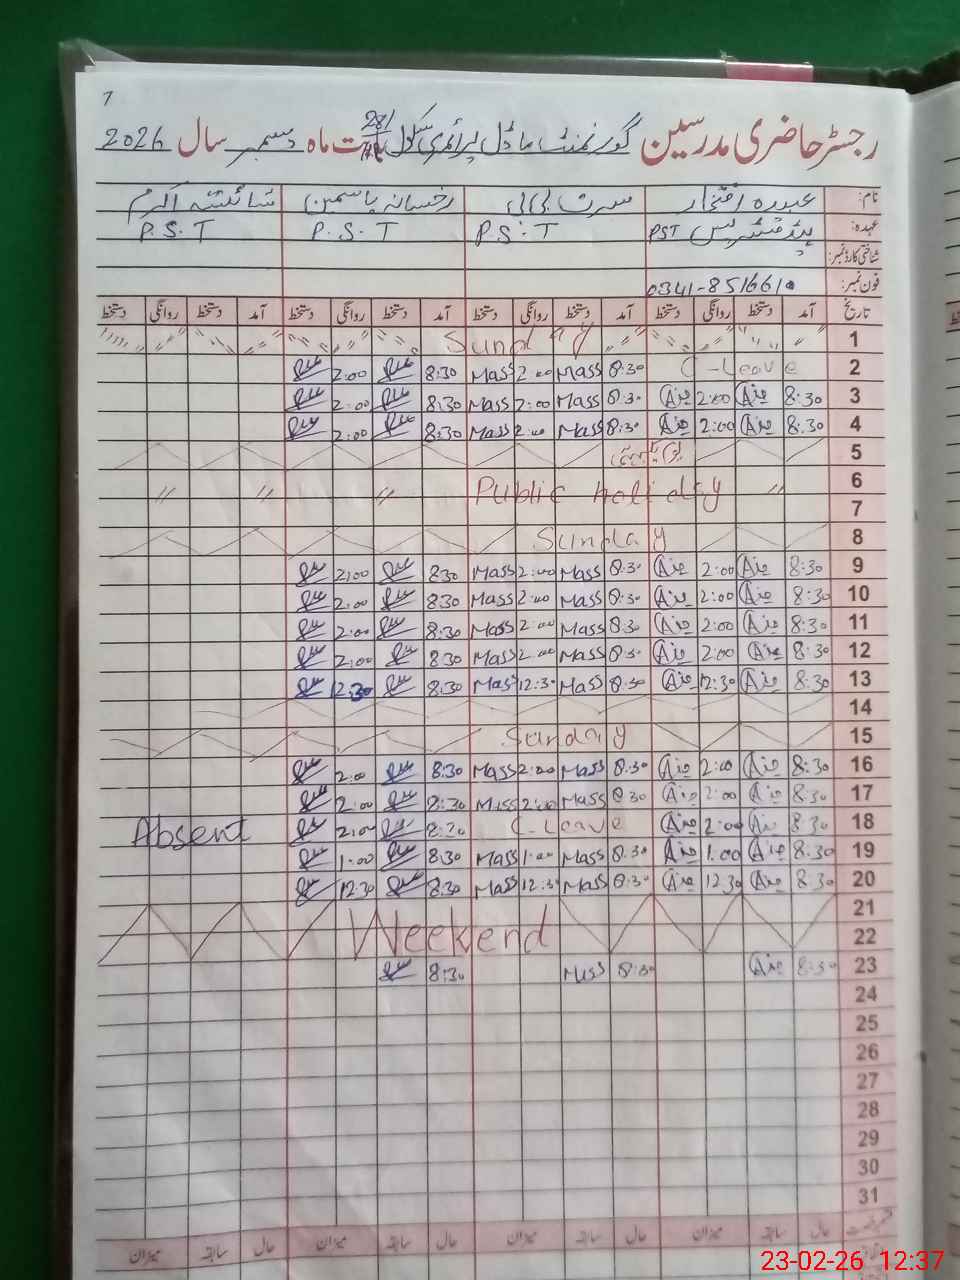 7
رجسٹر حاضری مدرسین گورنمنٹ ماڈل پرائمری سکول 28/ ت ماہ دسمبر سال 2026
نام: عبیرہ افتخار مسرت بی بی رخسانہ یاسمین شائستہ اکرم
عہدہ: PST P.S.T P.S.T P.S.T
شناختی کارڈ نمبر:
فون نمبر: 0341-8516610
تاریخ آمد دستخط روانگی دستخط آمد دستخط روانگی دستخط آمد دستخط روانگی دستخط آمد دستخط روانگی دستخط
1 Sunday
2 C-Leave 8:30 Mass 2:00 Mass 8:30 2:00
3 8:30 2:00 8:30 Mass 2:00 Mass 8:30 2:00
4 8:30 2:00 8:30 Mass 2:00 Mass 8:30 2:00
5
6 Public holiday
7
8 Sunday
9 8:30 2:00 8:30 Mass 2:00 Mass 8:30 2:00
10 8:30 2:00 8:30 Mass 2:00 Mass 8:30 2:00
11 8:30 2:00 8:30 Mass 2:00 Mass 8:30 2:00
12 8:30 2:00 8:30 Mass 2:00 Mass 8:30 2:00
13 8:30 12:30 8:30 Mass 12:30 Mass 8:30 12:30
14
15 Sunday
16 8:30 2:00 8:30 Mass 2:00 Mass 8:30 2:00
17 8:30 2:00 8:30 Mass 2:00 Mass 8:30 2:00
18 8:30 2:00 C-Leave 8:30 2:00 Absent
19 8:30 1:00 8:30 Mass 1:00 Mass 8:30 1:00
20 8:30 12:30 8:30 Mass 12:30 Mass 8:30 12:30
21
22 Weekend
23 8:30 8:30 Mass 8:30
24
25
26
27
28
29
30
31
حال سابقہ میزان حال سابقہ میزان حال سابقہ میزان حال سابقہ میزان
23-02-26 12:37